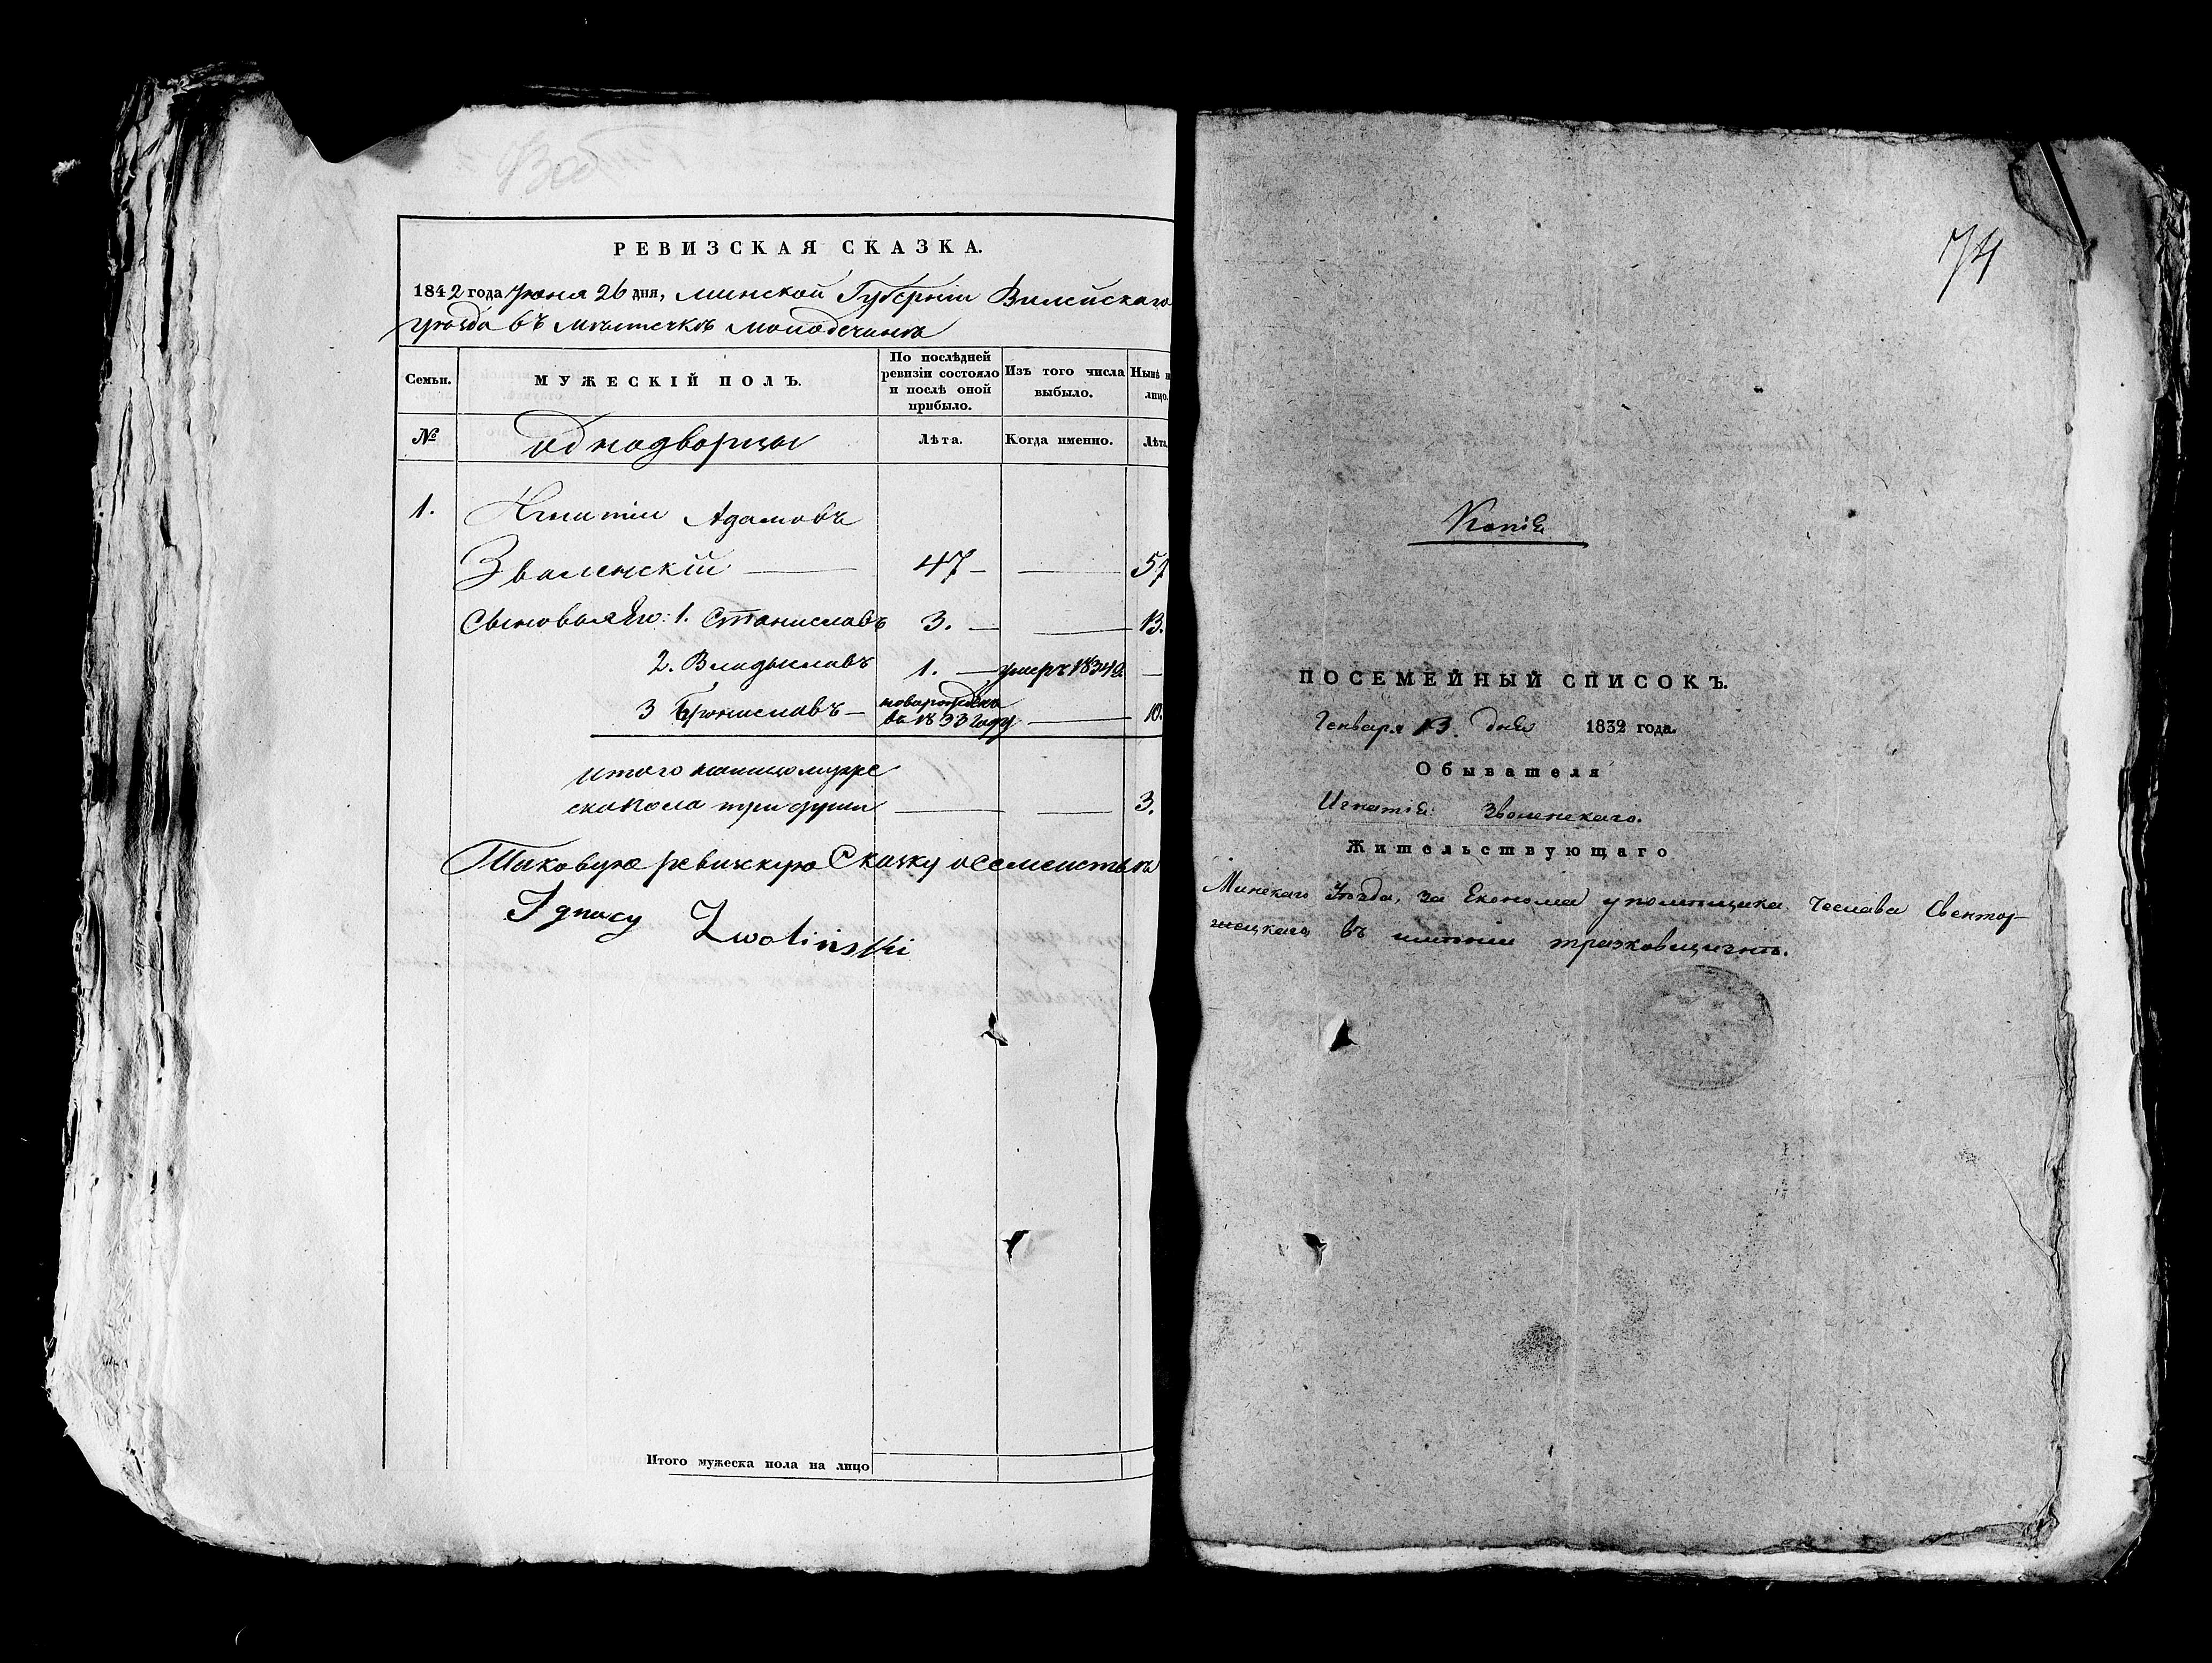 РЕВИЗСКАЯ СКАЗКА.
1842 года Июня 26 дня, Минской Губерніи Вилейскаго
уѣзда въ мѣстечкѣ Молодечнѣ
Семьи.
МУЖЕСКІЙ ПОЛЪ.
По послѣдней ревизіи состояло и послѣ оной прибыло.
Изъ того числа выбыло.
Нынѣ н лицо.
№
однодворцы
Лѣта.
Когда именно.
Лѣта
1. Игнатіи Адамовъ
Зволенскій 47 57
Сыновья Его: 1. Станиславъ 3. 13.
2. Владыславъ 1. умеръ 1834 г.
3 Брониславъ новорожденъ въ 1833 году 10.
итого налицо мужес
ска пола три души 3.
Таковую ревизскую Скаску о семействѣ
Ignacy Zwolinski
Итого мужеска пола на лицо
74
Копіе
ПОСЕМЕЙНЫЙ СПИСОКЪ.
Генваря 13. дня 1832 года.
Обывателя
Игнатіе Зволенскаго.
Жительствующаго
Минскаго Уѣзда, за Економа у помѣщика Чеслава Свентор-
жецкаго въ имѣніи